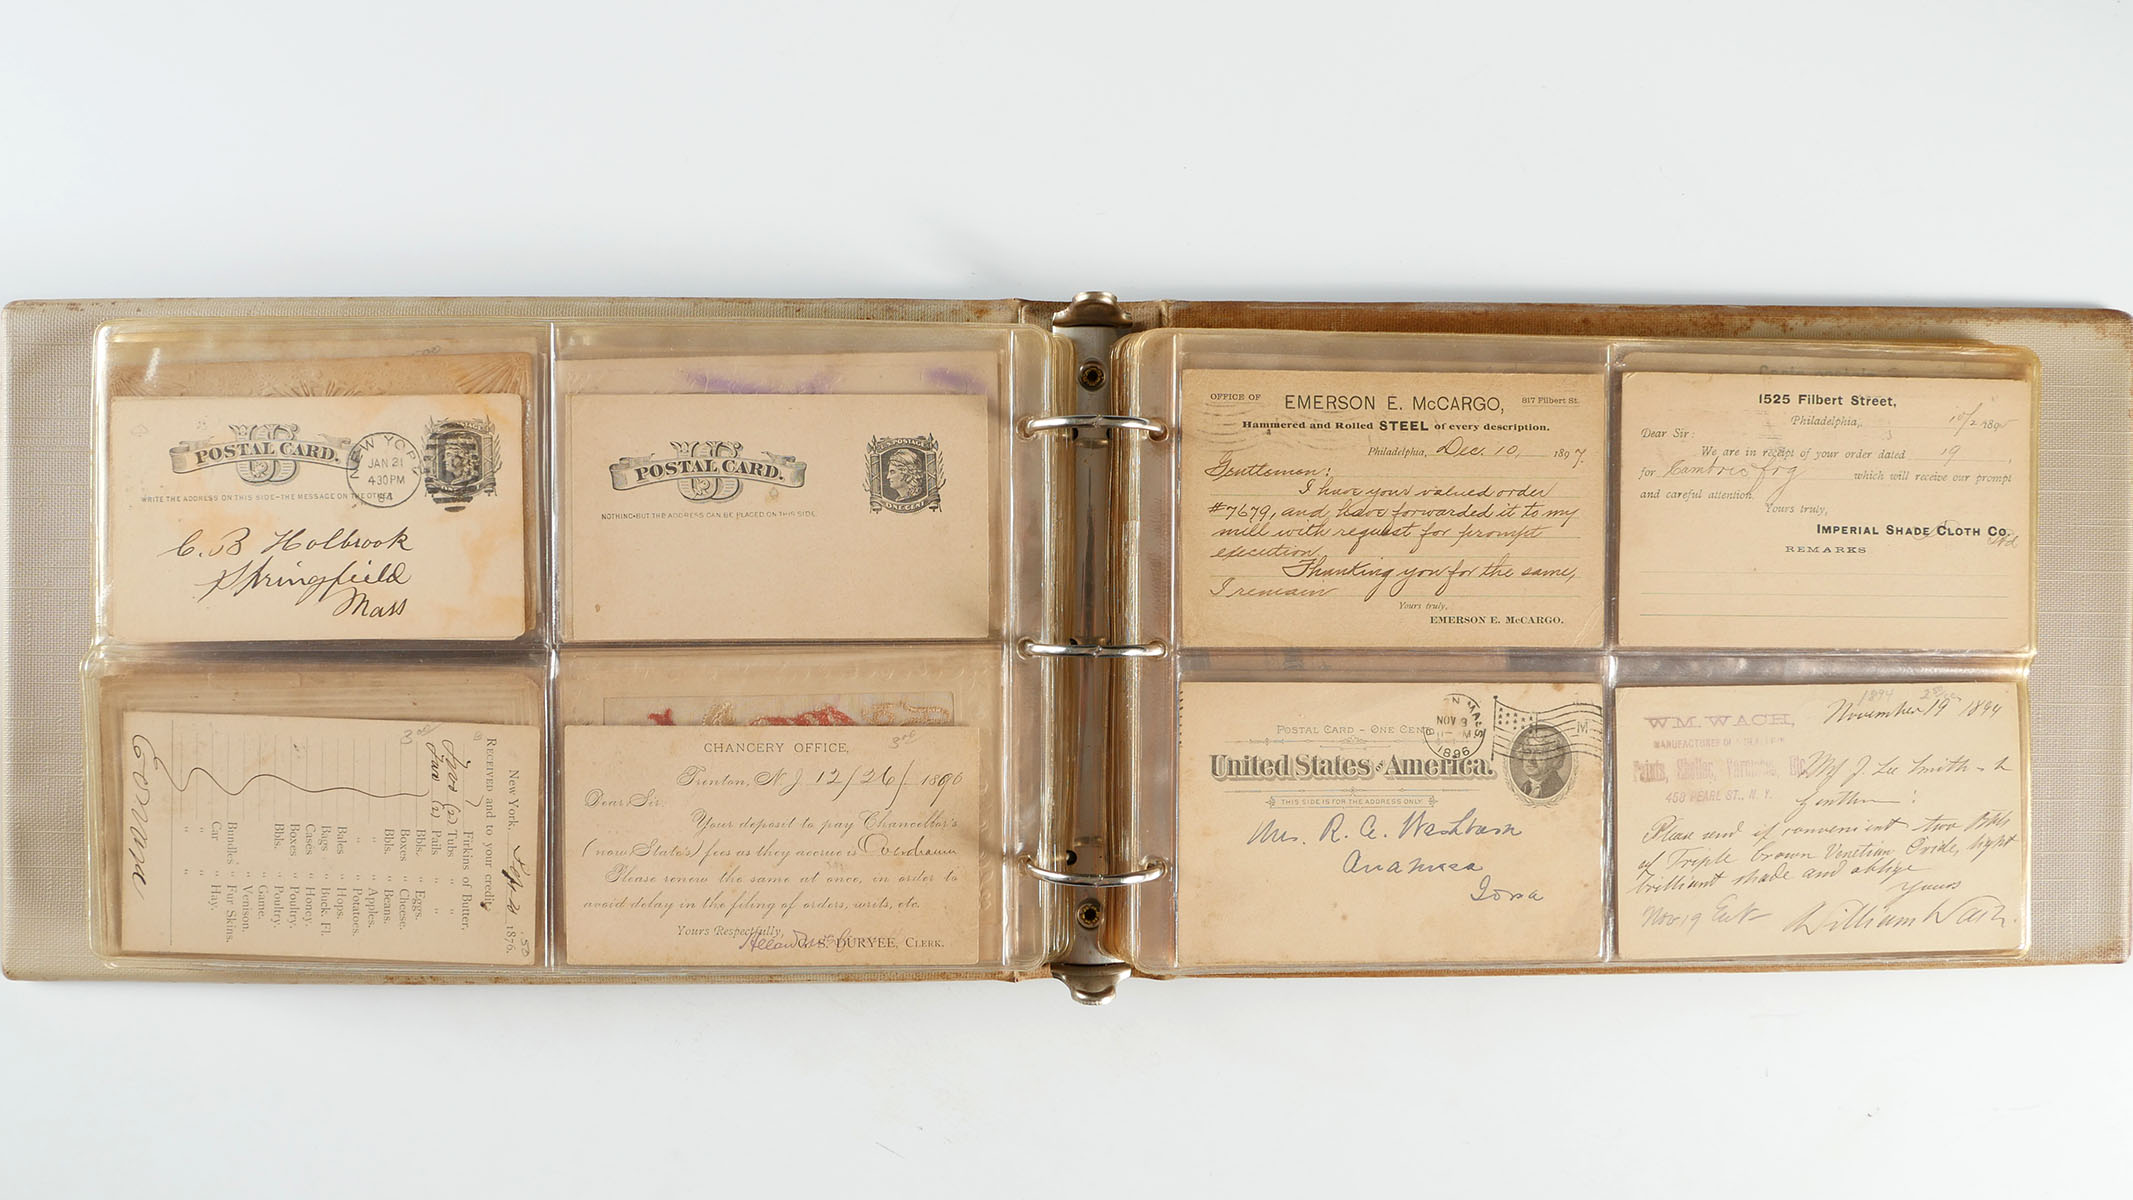 U S
POSTAL CARD.
NEW YORK
JAN 21
4 30 PM
84
U.S. POSTAGE
WRITE THE ADDRESS ON THIS SIDE-THE MESSAGE ON THE OTHER
C. B Holbrook
Springfield
Mass
U S
POSTAL CARD.
U.S. POSTAGE
ONE CENT
NOTHING BUT THE ADDRESS CAN BE PLACED ON THIS SIDE.
New York, 1876.
.50
RECEIVED and to your credit,
Firkins of Butter,
Tubs " "
Pails " "
Bbls. " Eggs.
Boxes " Cheese.
Bbls. " Beans.
" " Apples.
" " Potatoes.
Bales " Hops.
Bags " Buck. Fl.
Cases " Honey.
Boxes " Poultry.
Bbls. " Poultry.
" " Game.
" " Venison.
Bundles " Fur Skins.
Car " Hay.
" "
CHANCERY OFFICE,
Trenton, N. J. 12/26/ 1890
Dear Sir:
Your deposit to pay Chancellor's
(now State's) fees as they accrue is
Please renew the same at once, in order to
avoid delay in the filing of orders, writs, etc.
Yours Respectfully,
C. S. DURYEE, CLERK.
OFFICE OF EMERSON E. McCARGO, 817 Filbert St.
Hammered and Rolled STEEL of every description.
Philadelphia, Dec. 10, 1897.
Gentlemen:
I have your valued order
#7679, and have forwarded it to my
mill with request for prompt
execution.
Thanking you for the same,
I remain
Yours truly,
EMERSON E. McCARGO.
1525 Filbert Street,
Philadelphia, 10/2 189
Dear Sir:
We are in receipt of your order dated 19
for Cambric frg which will receive our prompt
and careful attention.
Yours truly,
IMPERIAL SHADE CLOTH CO.
REMARKS
POSTAL CARD – ONE CENT
NOV 8
1896
United States of America.
THIS SIDE IS FOR THE ADDRESS ONLY.
Mrs. R. A. Washburn
Anamosa
Iowa
1894
November 19 1894
WM. WACH,
MANUFACTURER OF & DEALER IN
Paints, Shellac, Varnishes, Etc.
458 PEARL ST., N. Y.
J. Lee Smith & Co
Gentlem:
Please send if convenient two Bbls
of Triple brown Venetian Oxide, light
brilliant shade and oblige
Yours
Nov 19 William Wach.